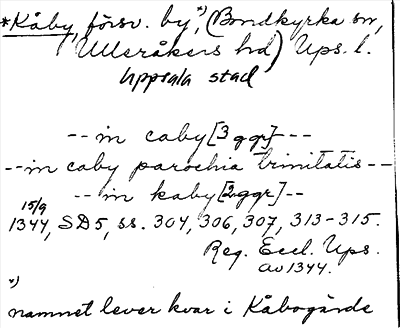 *Kåby, försv. by*), (Bondkyrka sn,
Ulleråkers hd) Ups. l.
Uppsala stad
-- in caby [3 ggr] ---
-- in caby parochia trinitatis --
-- in kaby [2 ggr] --
15/9
1344, SD5, ss. 304, 306, 307, 313-315.
Reg. Eccl. Ups.
av 1344.
*)
namnet lever kvar i Kåbogärde